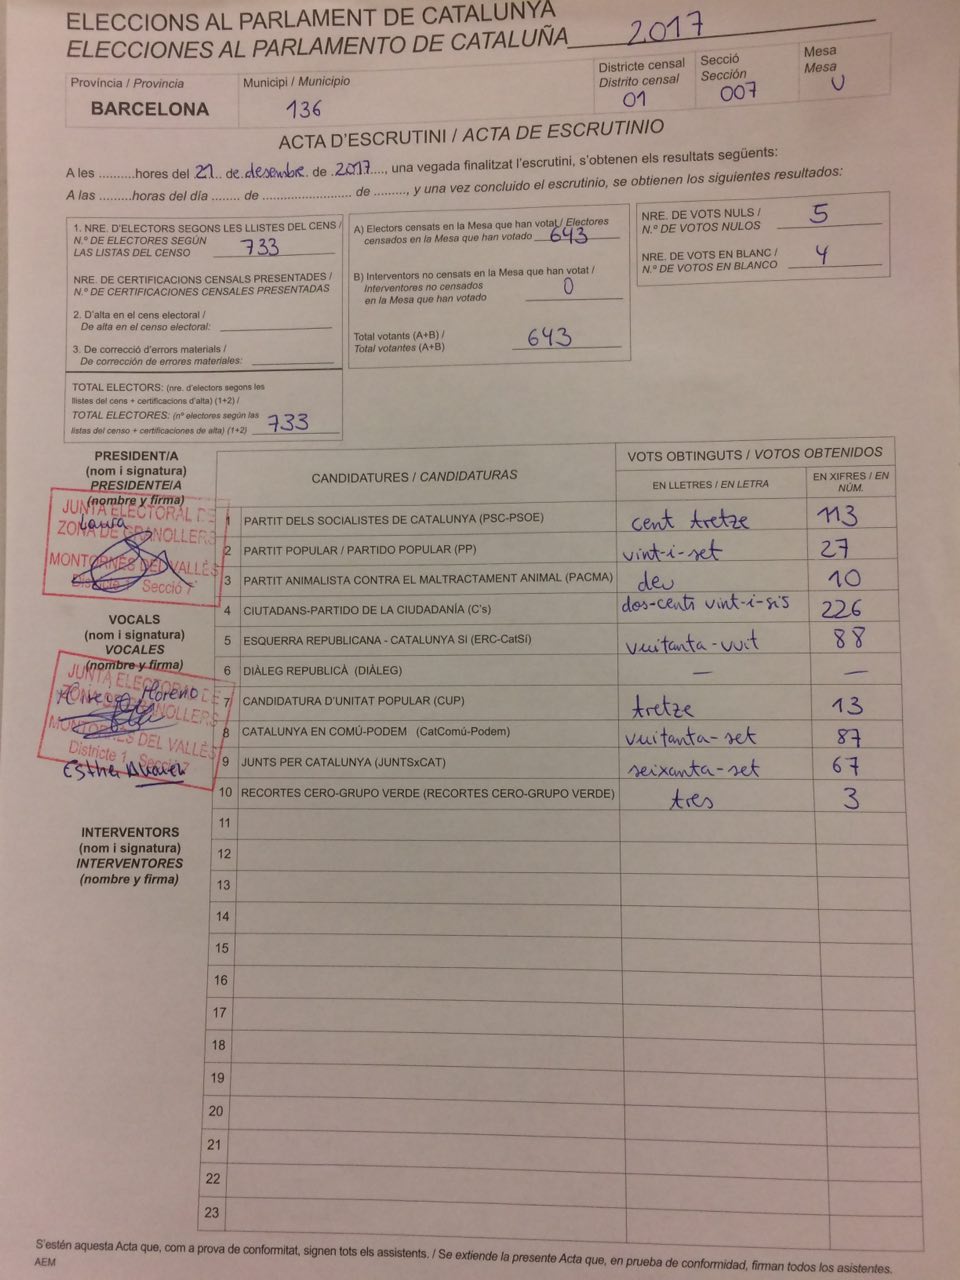 ELECCIONS AL PARLAMENT DE CATALUNYA
ELECCIONES AL PARLAMENTO DE CATALUÑA 2017
Província / Provincia
BARCELONA
Municipi / Municipio
136
Districte censal
Distrito censal
01
Secció
Sección
007
Mesa
Mesa
U
ACTA D'ESCRUTINI / ACTA DE ESCRUTINIO
A les .........hores del 21.. de desembre. de .2017...., una vegada finalitzat l'escrutini, s'obtenen els resultats següents:
A las .........horas del día ........ de ......................... de .........., y una vez concluido el escrutinio, se obtienen los siguientes resultados:
1. NRE. D'ELECTORS SEGONS LES LLISTES DEL CENS /
N.º DE ELECTORES SEGÚN
LAS LISTAS DEL CENSO 733
NRE. DE CERTIFICACIONS CENSALS PRESENTADES /
N.º DE CERTIFICACIONES CENSALES PRESENTADAS
2. D'alta en el cens electoral /
De alta en el censo electoral:
3. De correcció d'errors materials /
De corrección de errores materiales:
TOTAL ELECTORS: (nre. d'electors segons les
llistes del cens + certificacions d'alta) (1+2) /
TOTAL ELECTORES: (nº electores según las
listas del censo + certificaciones de alta) (1+2) 733
A) Electors censats en la Mesa que han votat / Electores
censados en la Mesa que han votado 643
B) Interventors no censats en la Mesa que han votat /
Interventores no censados
en la Mesa que han votado 0
Total votants (A+B) /
Total votantes (A+B) 643
NRE. DE VOTS NULS /
N.º DE VOTOS NULOS 5
NRE. DE VOTS EN BLANC /
N.º DE VOTOS EN BLANCO 4
PRESIDENT/A
(nom i signatura)
PRESIDENTE/A
(nombre y firma)
JUNTA ELECTORAL DE
Laura
ZONA DE GRANOLLERS
MONTORNÈS DEL VALLÈS
Districte 1 Secció 7
VOCALS
(nom i signatura)
VOCALES
(nombre y firma)
JUNTA ELECTORAL DE
Moreno
ZONA DE GRANOLLERS
MONTORNÈS DEL VALLÈS
Districte 1 Secció 7
Esther
INTERVENTORS
(nom i signatura)
INTERVENTORES
(nombre y firma)
CANDIDATURES / CANDIDATURAS
VOTS OBTINGUTS / VOTOS OBTENIDOS
EN LLETRES / EN LETRA
EN XIFRES / EN
NÚM.
1 PARTIT DELS SOCIALISTES DE CATALUNYA (PSC-PSOE) cent tretze 113
2 PARTIT POPULAR / PARTIDO POPULAR (PP) vint-i-set 27
3 PARTIT ANIMALISTA CONTRA EL MALTRACTAMENT ANIMAL (PACMA) deu 10
4 CIUTADANS-PARTIDO DE LA CIUDADANÍA (C's) dos-cents vint-i-sis 226
5 ESQUERRA REPUBLICANA - CATALUNYA SI (ERC-CatSí) vuitanta-vuit 88
6 DIÀLEG REPUBLICÀ (DIÀLEG) — —
7 CANDIDATURA D'UNITAT POPULAR (CUP) tretze 13
8 CATALUNYA EN COMÚ-PODEM (CatComú-Podem) vuitanta-set 87
9 JUNTS PER CATALUNYA (JUNTSxCAT) seixanta-set 67
10 RECORTES CERO-GRUPO VERDE (RECORTES CERO-GRUPO VERDE) tres 3
11
12
13
14
15
16
17
18
19
20
21
22
23
S'estén aquesta Acta que, com a prova de conformitat, signen tots els assistents. / Se extiende la presente Acta que, en prueba de conformidad, firman todos los asistentes.
AEM